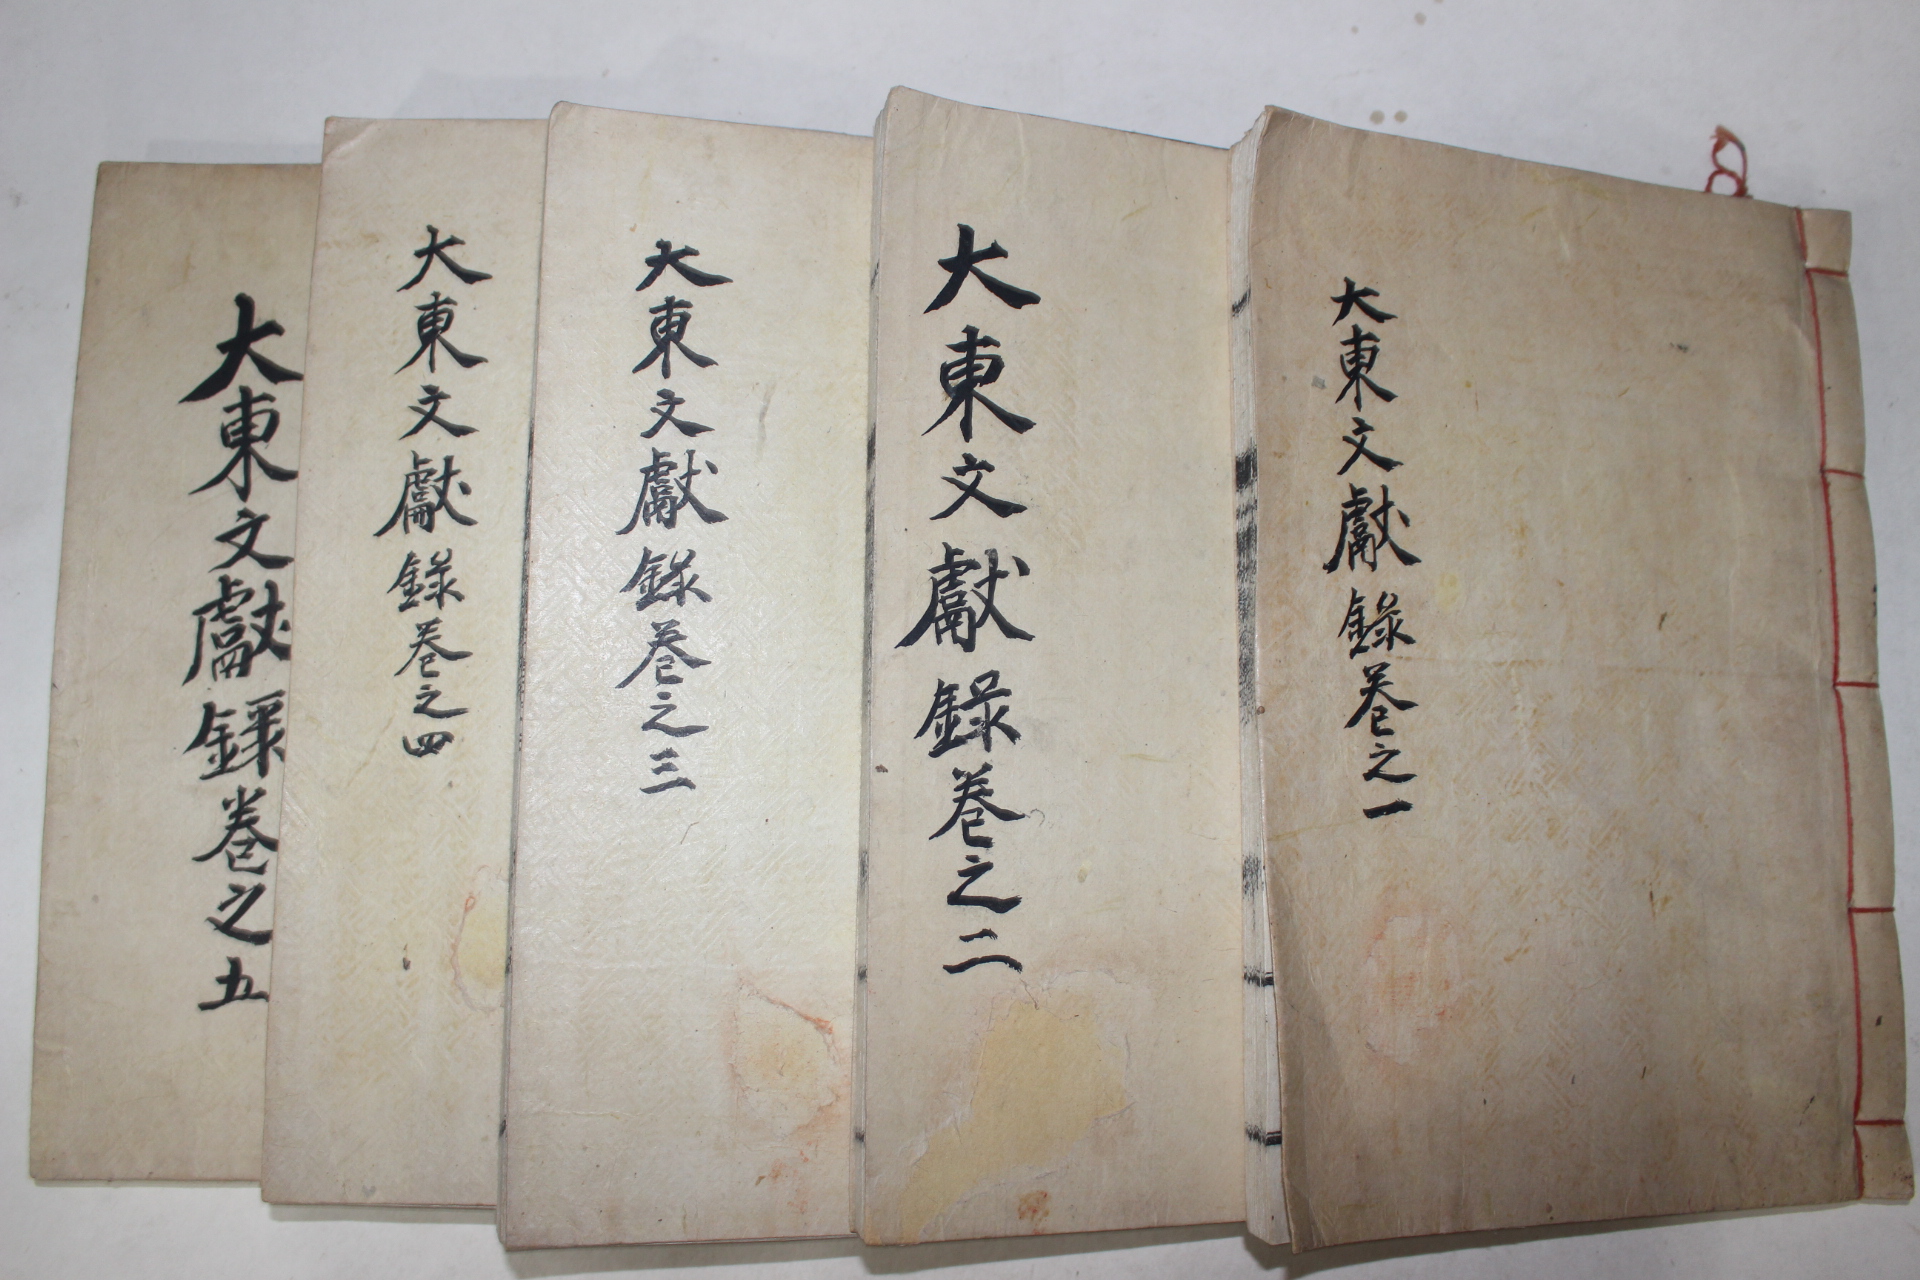 大東文獻錄卷之一
大東文獻錄卷之二
大東文獻錄卷之三
大東文獻錄卷之四
大東文獻錄卷之五